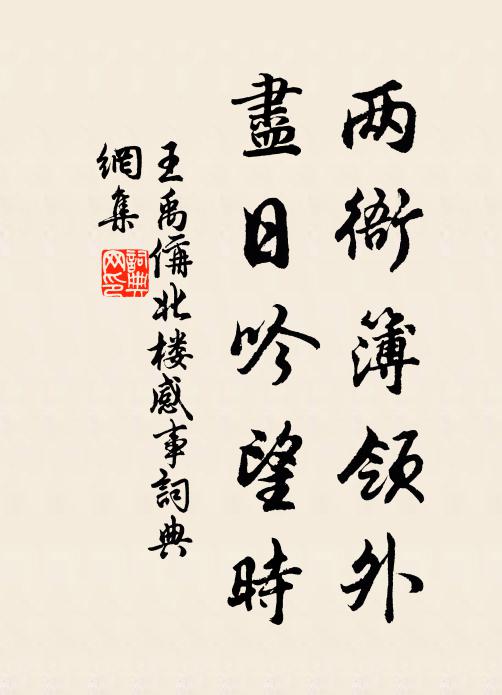 两衙簿领外
盡日吟望時
王禹偁北楼感事詞典
網集
詞典
网印